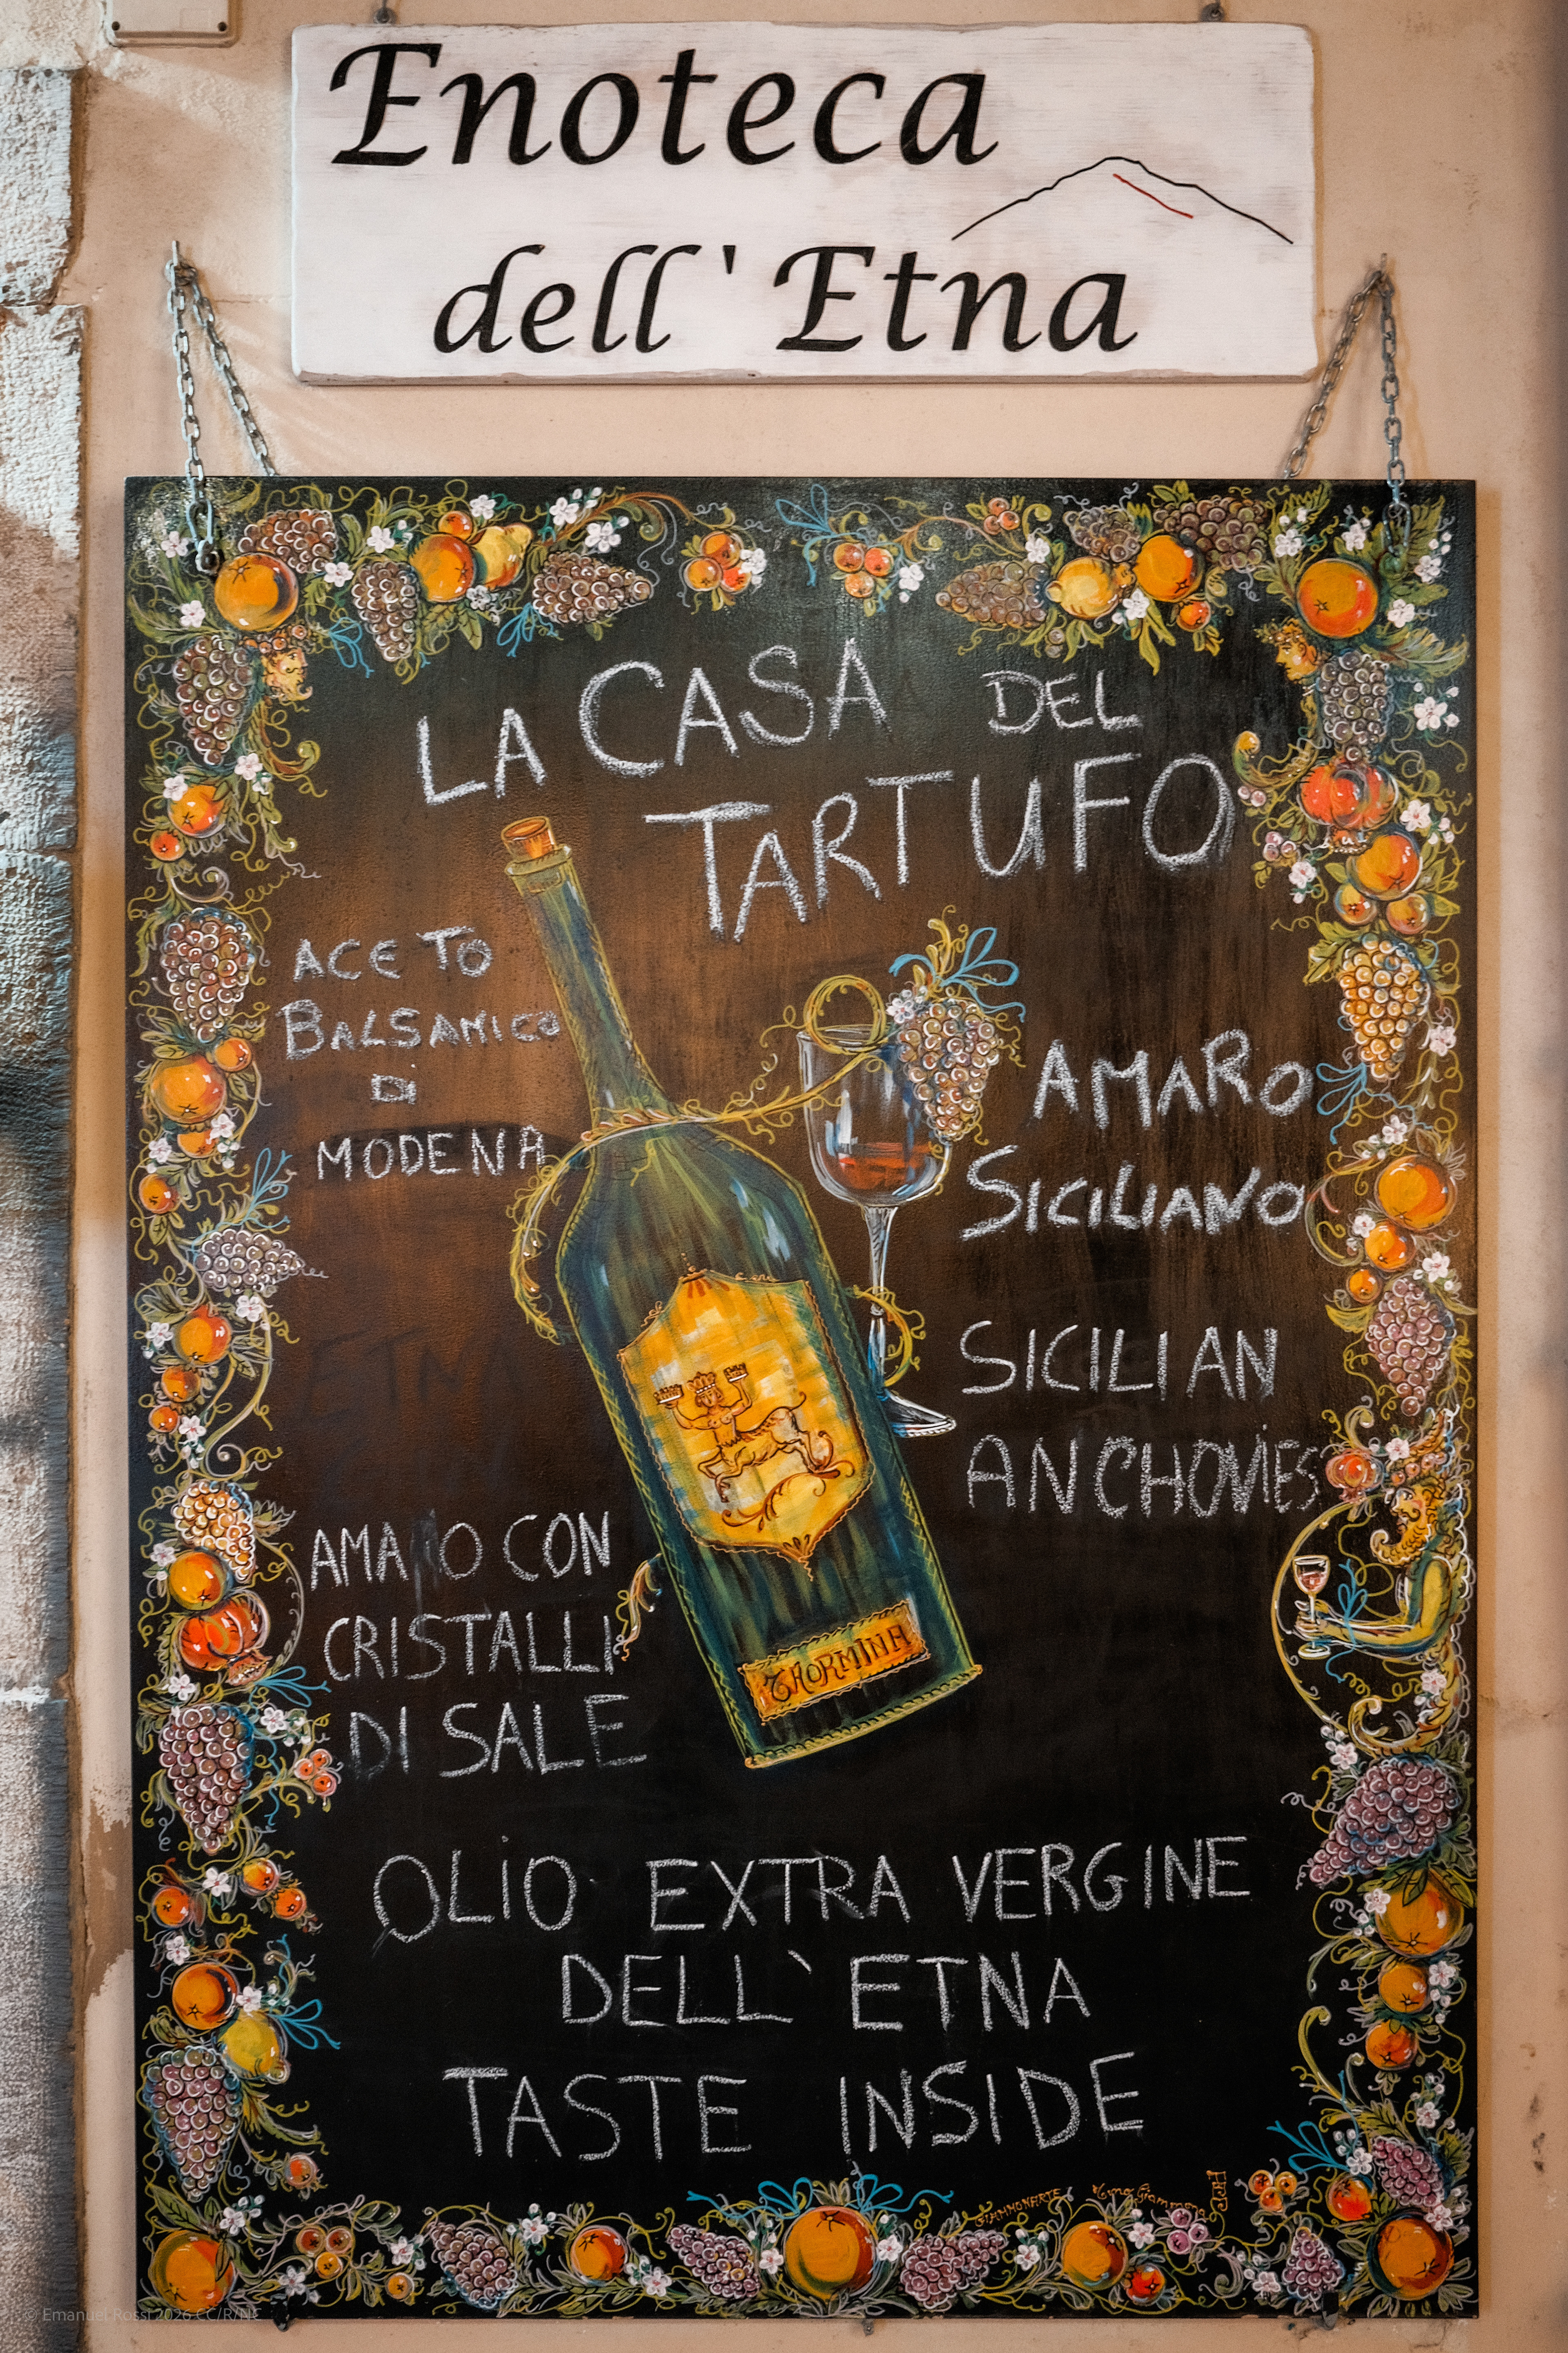 Enoteca
dell'Etna
LA CASA DEL
TARTUFO
ACETO
BALSAMICO
DI
MODENA
AMARO
SICILIANO
SICILIAN
ANCHOVIES
CON
CRISTALLI
DI SALE
TAORMINA
OLIO EXTRA VERGINE
DELL`ETNA
TASTE INSIDE
GIAMMONARTE
© Emanuel Rossi 2026 CC/R/NC